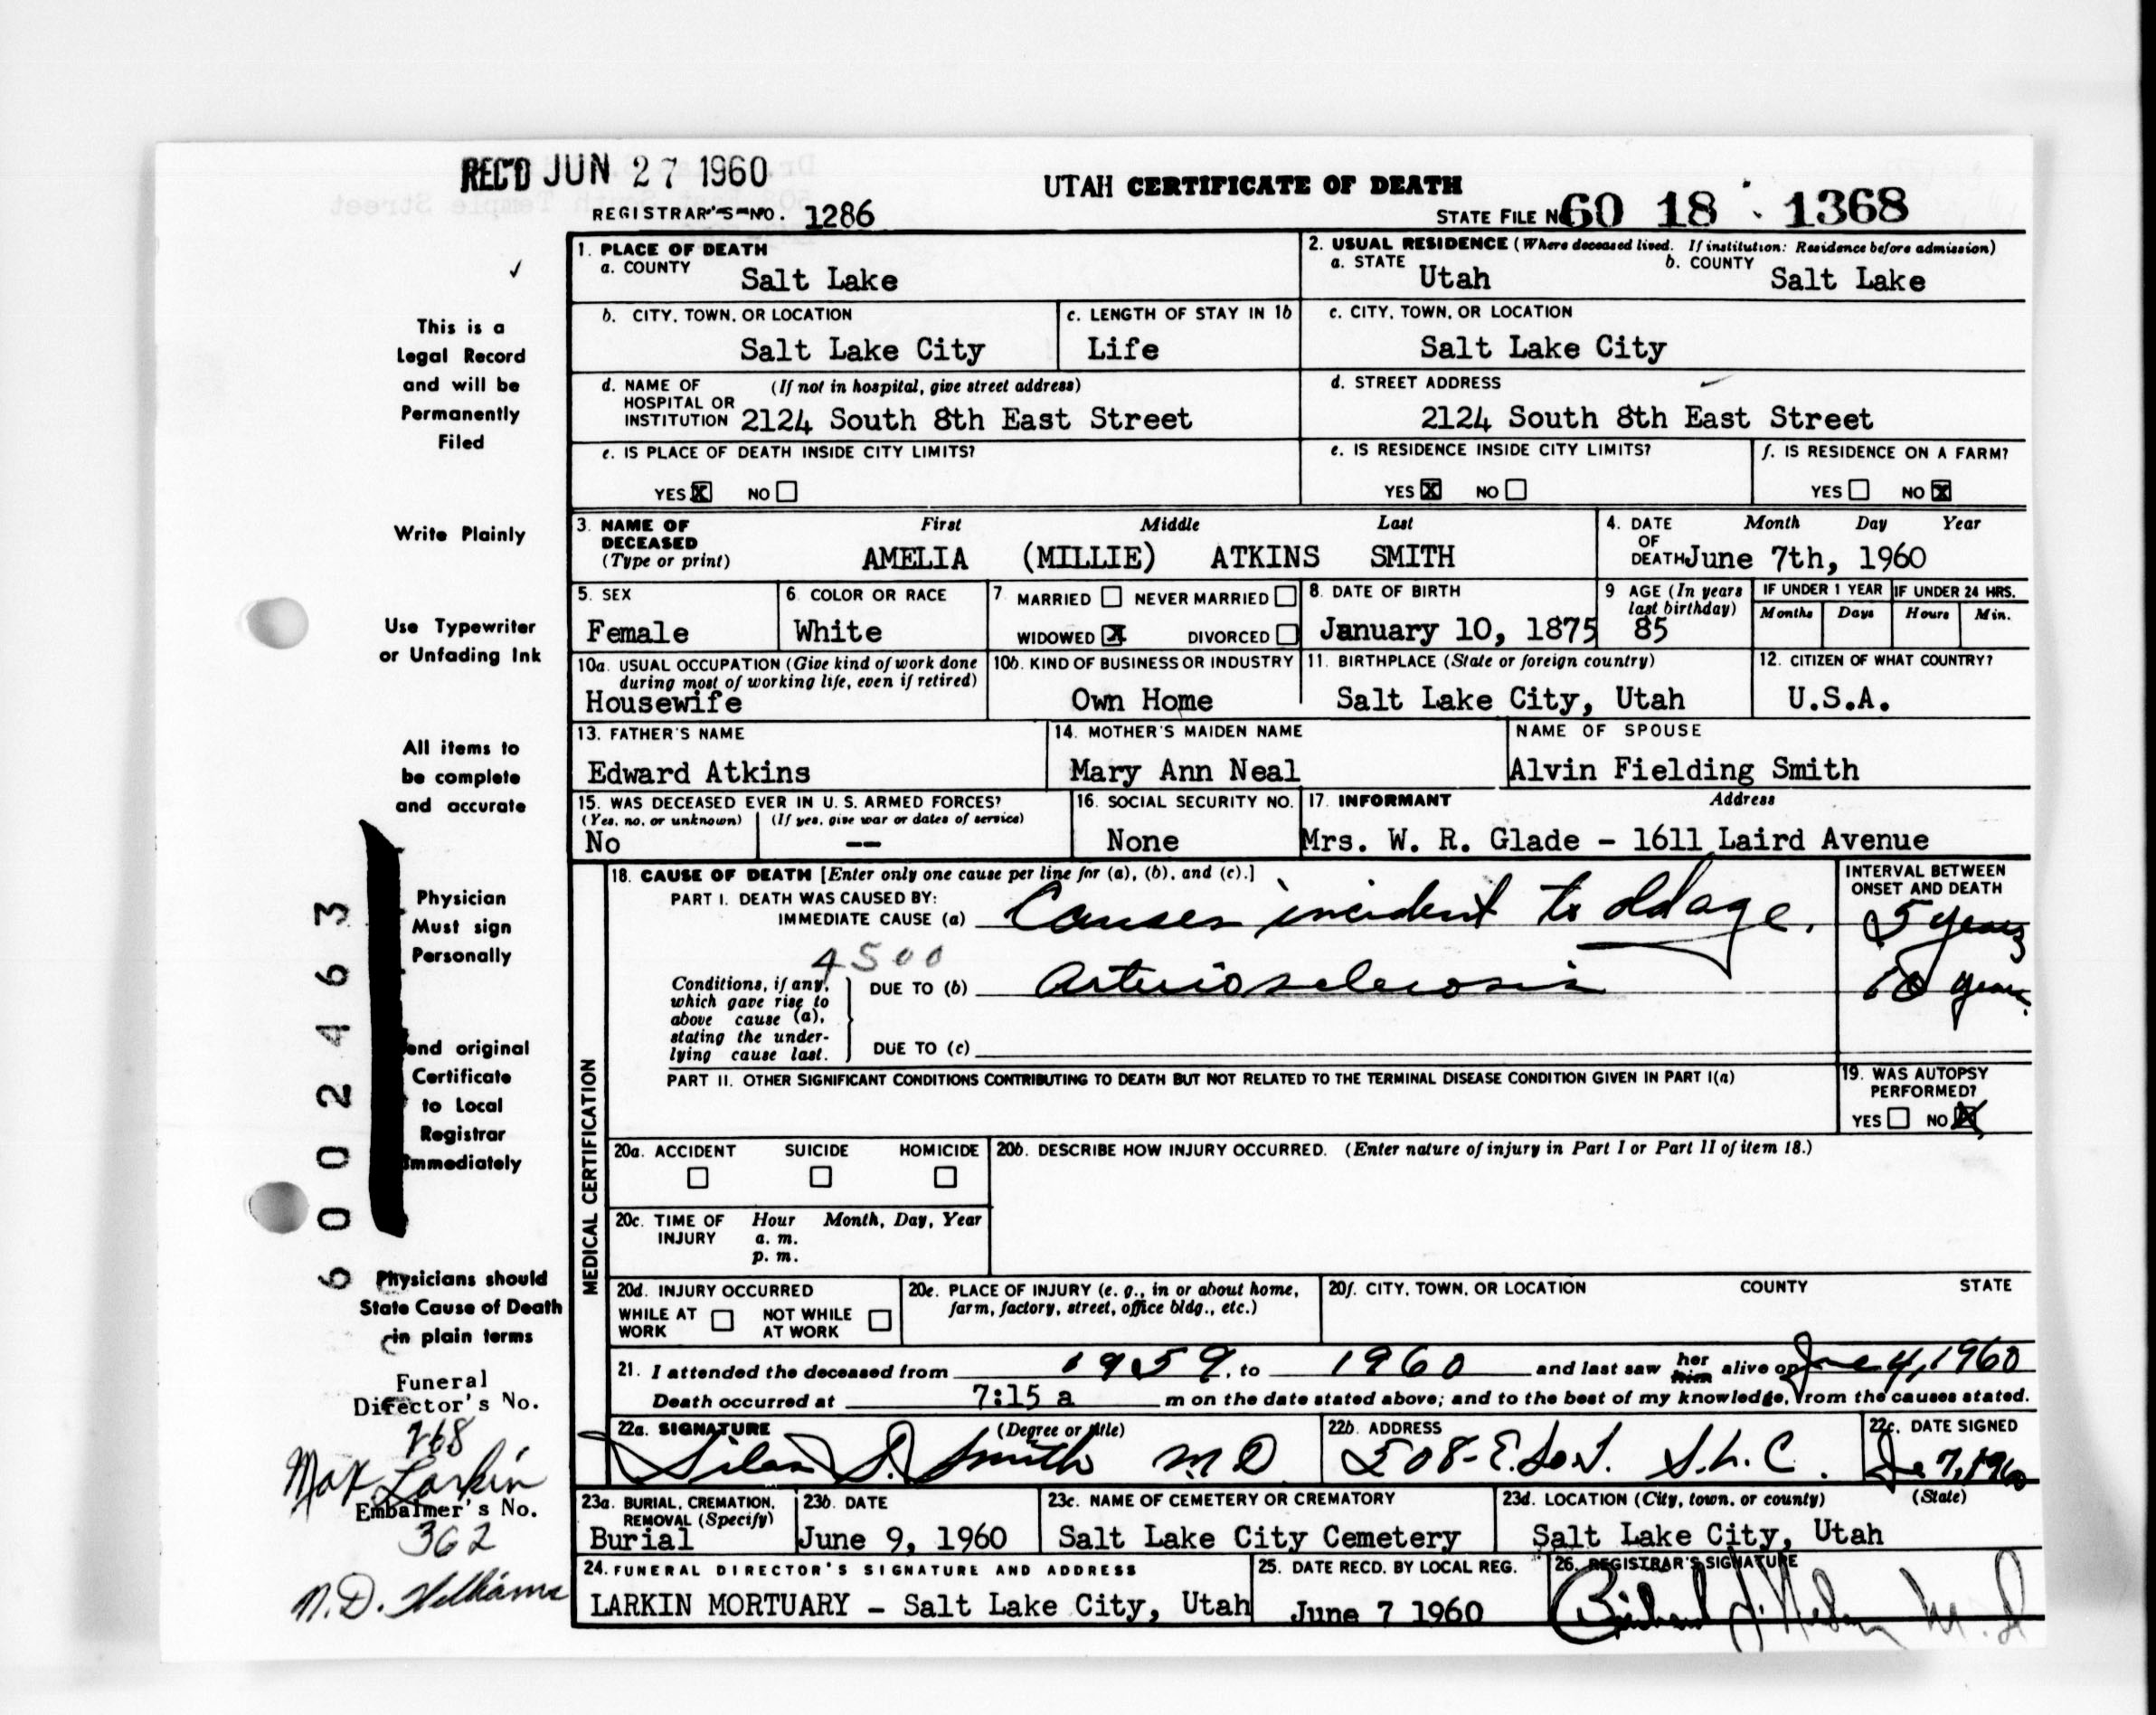 REC'D JUN 27 1960
UTAH CERTIFICATE OF DEATH
REGISTRAR'S NO. 1286
STATE FILE NO 60 18 1368
This is a
Legal Record
and will be
Permanently
Filed
Write Plainly
Use Typewriter
or Unfading Ink
All items to
be complete
and accurate
Physician
Must sign
Personally
end original
Certificate
to Local
Registrar
Immediately
6002463
Physicians should
State Cause of Death
in plain terms
Funeral
Director's No.
268
Max Larkin
Embalmer's No.
362
N.D. Williams
1. PLACE OF DEATH
a. COUNTY Salt Lake
2. USUAL RESIDENCE (Where deceased lived. If institution: Residence before admission)
a. STATE Utah b. COUNTY Salt Lake
b. CITY, TOWN, OR LOCATION Salt Lake City
c. LENGTH OF STAY IN 1b Life
c. CITY, TOWN, OR LOCATION Salt Lake City
d. NAME OF HOSPITAL OR INSTITUTION (If not in hospital, give street address)
2124 South 8th East Street
d. STREET ADDRESS
2124 South 8th East Street
e. IS PLACE OF DEATH INSIDE CITY LIMITS?
YES X NO
e. IS RESIDENCE INSIDE CITY LIMITS?
YES X NO
f. IS RESIDENCE ON A FARM?
YES NO X
3. NAME OF DECEASED (Type or print) First Middle Last
AMELIA (MILLIE) ATKINS SMITH
4. DATE OF DEATH Month Day Year
June 7th, 1960
5. SEX Female
6. COLOR OR RACE White
7. MARRIED NEVER MARRIED
WIDOWED X DIVORCED
8. DATE OF BIRTH January 10, 1875
9 AGE (In years last birthday) 85
IF UNDER 1 YEAR Months Days
IF UNDER 24 HRS. Hours Min.
10a. USUAL OCCUPATION (Give kind of work done during most of working life, even if retired)
Housewife
10b. KIND OF BUSINESS OR INDUSTRY
Own Home
11. BIRTHPLACE (State or foreign country)
Salt Lake City, Utah
12. CITIZEN OF WHAT COUNTRY?
U.S.A.
13. FATHER'S NAME
Edward Atkins
14. MOTHER'S MAIDEN NAME
Mary Ann Neal
NAME OF SPOUSE
Alvin Fielding Smith
15. WAS DECEASED EVER IN U. S. ARMED FORCES?
(Yes, no, or unknown) (If yes, give war or dates of service)
No --
16. SOCIAL SECURITY NO.
None
17. INFORMANT Address
Mrs. W. R. Glade - 1611 Laird Avenue
MEDICAL CERTIFICATION
18. CAUSE OF DEATH [Enter only one cause per line for (a), (b), and (c).]
PART I. DEATH WAS CAUSED BY:
IMMEDIATE CAUSE (a) Causes incident to old age.
INTERVAL BETWEEN ONSET AND DEATH
5 years
4500
Conditions, if any, which gave rise to above cause (a), stating the underlying cause last.
DUE TO (b) Arteriosclerosis
10 years
DUE TO (c)
PART II. OTHER SIGNIFICANT CONDITIONS CONTRIBUTING TO DEATH BUT NOT RELATED TO THE TERMINAL DISEASE CONDITION GIVEN IN PART I(a)
19. WAS AUTOPSY PERFORMED?
YES NO X
20a. ACCIDENT SUICIDE HOMICIDE
20b. DESCRIBE HOW INJURY OCCURRED. (Enter nature of injury in Part I or Part II of item 18.)
20c. TIME OF INJURY Hour Month, Day, Year
a. m.
p. m.
20d. INJURY OCCURRED
WHILE AT WORK NOT WHILE AT WORK
20e. PLACE OF INJURY (e. g., in or about home, farm, factory, street, office bldg., etc.)
20f. CITY, TOWN, OR LOCATION COUNTY STATE
21. I attended the deceased from 1959, to 1960 and last saw her him alive on June 4, 1960
Death occurred at 7:15 a m on the date stated above; and to the best of my knowledge, from the causes stated.
22a. SIGNATURE (Degree or title)
Silas S. Smith M D
22b. ADDRESS
508-E. So. T. S.L.C.
22c. DATE SIGNED
Ju 7, 1960
23a. BURIAL, CREMATION, REMOVAL (Specify)
Burial
23b. DATE
June 9, 1960
23c. NAME OF CEMETERY OR CREMATORY
Salt Lake City Cemetery
23d. LOCATION (City, town, or county) (State)
Salt Lake City, Utah
24. FUNERAL DIRECTOR'S SIGNATURE AND ADDRESS
LARKIN MORTUARY - Salt Lake City, Utah
25. DATE RECD. BY LOCAL REG.
June 7 1960
26. REGISTRAR'S SIGNATURE